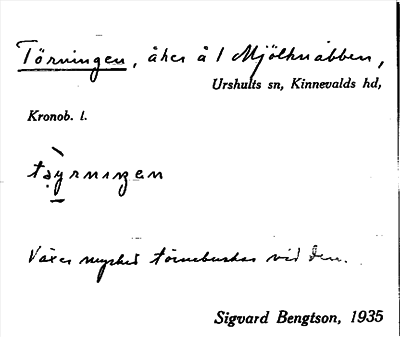 Törningen, åker å 1 Mjölknabben,
Urshults sn, Kinnevalds hd,
Kronob. l.
Växer mycket törnebuskar vid den.
Sigvard Bengtson, 1935